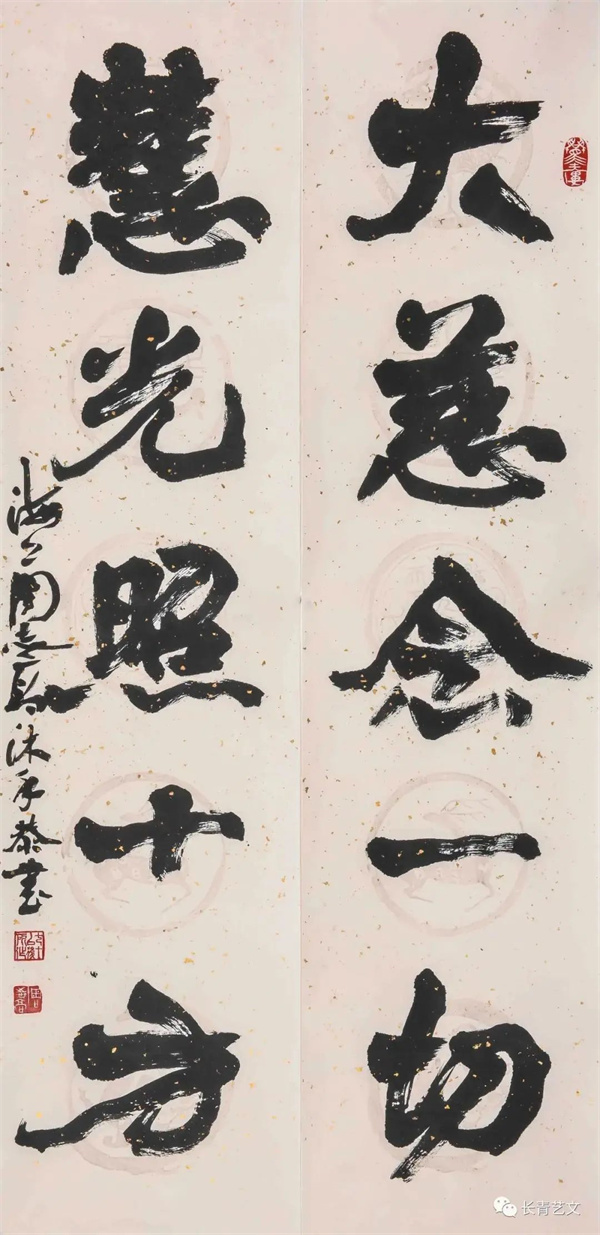 大慈念一切
慧光照十方
海上周志高沐手恭书
长青艺文